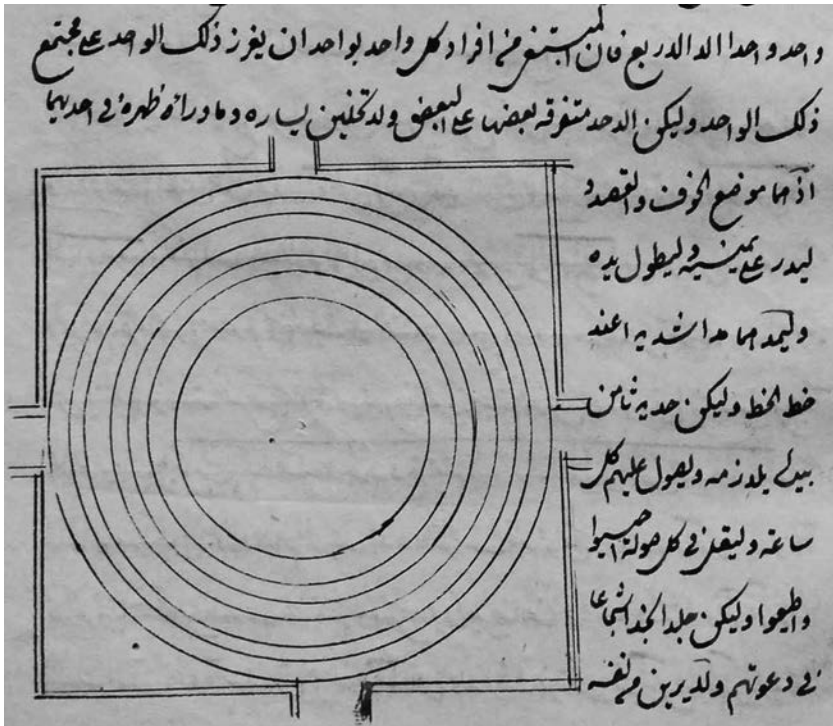 واحد واحدا الا الاربع فان المستنفر منه افراد كل واحد بواحد ان يغرز ذلك الواحد على مجتمع
ذلك الواحد وليكن الاحد متفرقه بعضها على البعض ولا تخلين يساره وما وراه ظهره في احديهما
اذ هما موضع الخوف والقصد و
ليدر على يمينه وليطول يده
وليمدهما مدا شديدا عند
خط الخط وليكن حديه ثامن
بيده يلازمه ويصول عليهم كل
ساعه وليقل في كل صولة اجيبوا
واطيعوا وليكن جلد الجنه شجاعا
في دعوتهم ولا يرين من نفسه